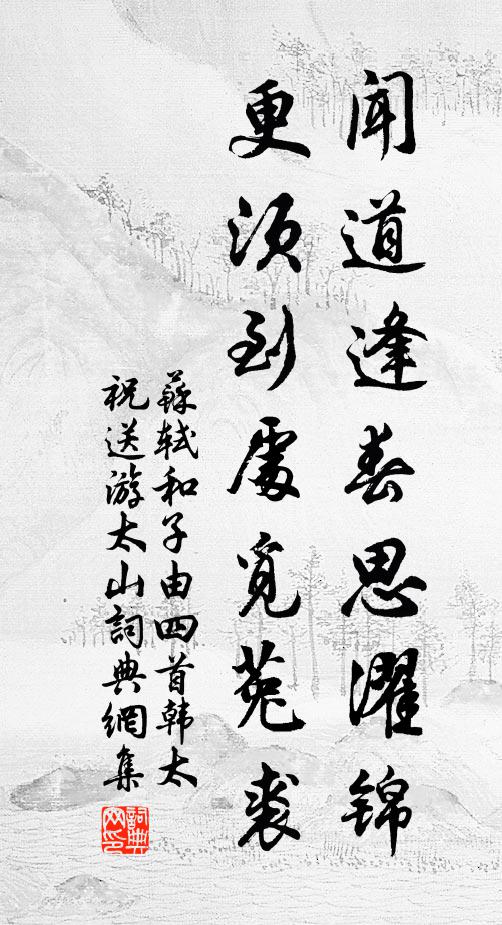 聞道逢春思濯錦
更須到處覓菟裘
蘇軾和子由四首韩太
祝送游太山詞典網集
詞典網印